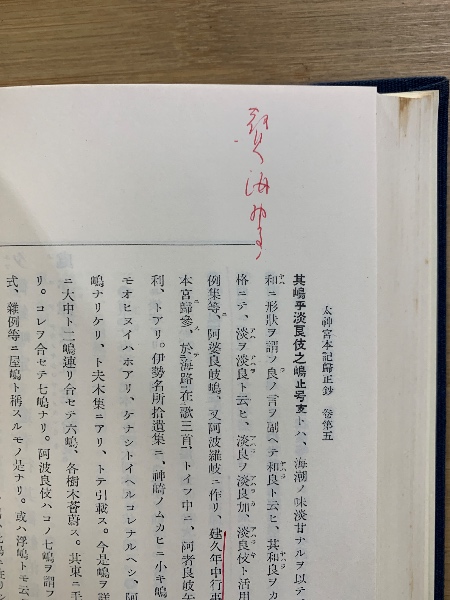 太神宮本記歸正鈔 卷第五
其嶋乎淡良伎之嶋止号支トハ、海潮ノ味淡甘ナルヲ以テ
和ニ形狀ヲ謂フ良ノ言ヲ副ヘテ和良ト云ヒ、其和良ヲカ
格ニテ、淡ヲ淡良ト云ヒ、淡良ヲ淡良加、淡良伎ト活用
例集等、阿婆良岐嶋、又阿波羅岐ニ作リ、建久年中行事
本宮歸參、於海路在歌三首、トイフ中ニ、阿者良岐矢
利、トアリ。伊勢名所拾遺集ニ、神崎ノムカヒニ小キ嶋
モオヒヌイハホアリ、ケナシトイヘルコレナルヘシ、阿
嶋ナリケリ、ト夫木集ニアリ、トテ引載ス。今是嶋ヲ詳
ニ大中ト二嶋連リ合セテ六嶋、各樹木蒼蔚ス。其東ニ手
リ。コレヲ合セテ七嶋ナリ。阿波良伎ハコノ七嶋ヲ謂フ
式、雜例等ニ屋嶋ト稱スルモノ是ナリ。或ハ浮嶋トモ云